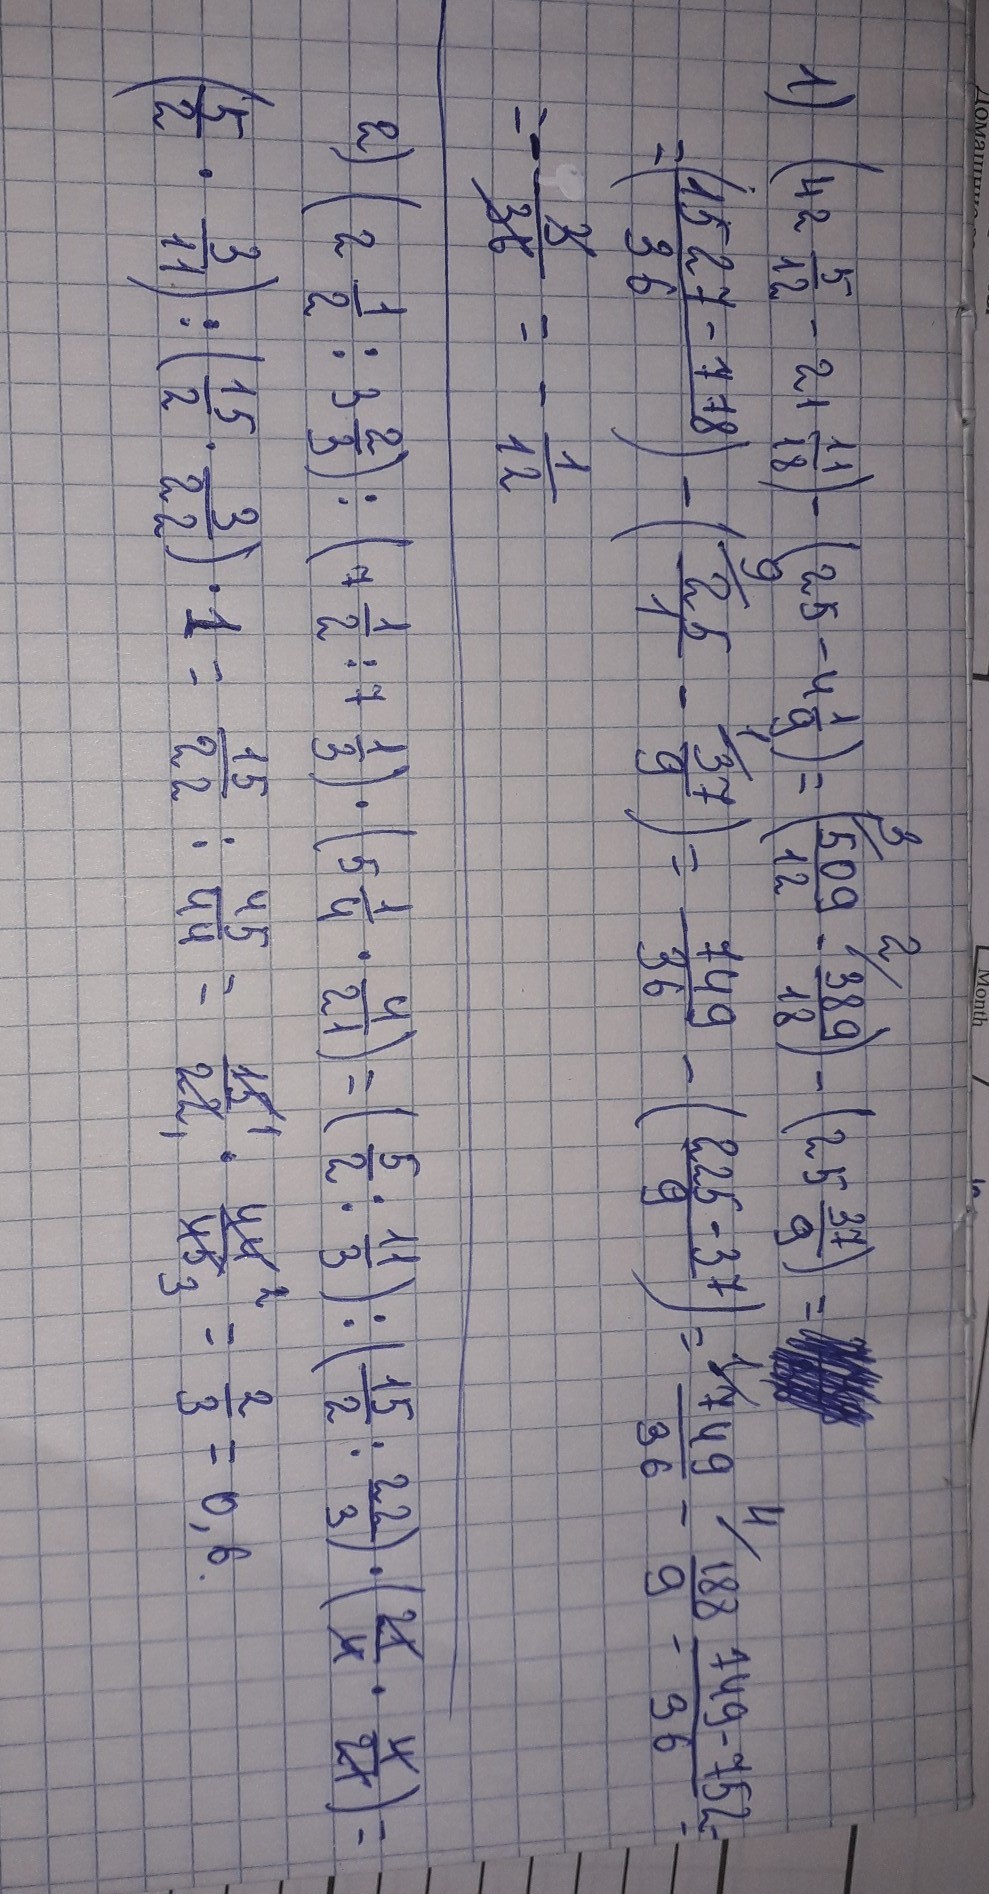 1) (42 5/12 - 21 11/18) - (25 - 4 1/9) = (509/12 - 389/18) - (25 37/9) =
= (1527 - 778/36) - (25/1 - 37/9) = 749/36 - (225 - 37/9) = 749/36 - 188/9 = 749 - 752/36 =
= - 3/36 = - 1/12
2) (2 1/2 : 3 2/3) : (7 1/2 : 7 1/3) · (5 1/4 · 4/21) = (5/2 : 11/3) : (15/2 : 22/3) · (21/4 · 4/21) =
(5/2 · 3/11) : (15/2 · 3/22) · 1 = 15/22 : 45/44 = 15/22 · 44/45 = 2/3 = 0,6.
Month